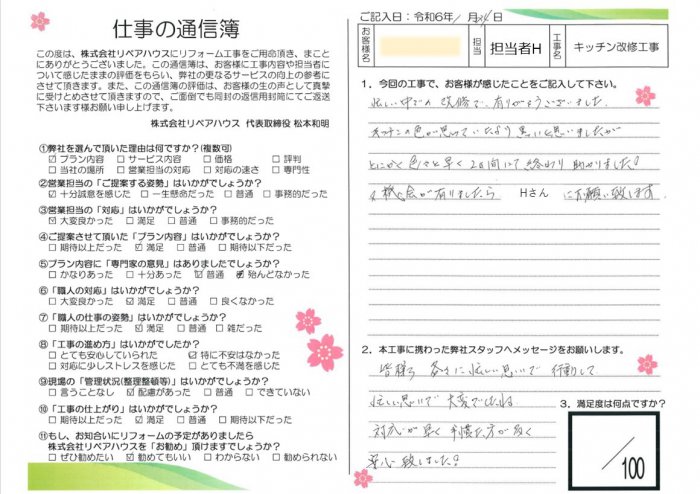 仕事の通信簿
この度は、株式会社リペアハウスにリフォーム工事をご用命頂き、まこと
にありがとうございました。この通信簿は、お客様に工事内容や担当者に
ついて感じたままの評価をもらい、弊社の更なるサービスの向上の参考に
させて頂きます。また、この通信簿の評価は、お客様の生の声として真摯
に受けとめさせて頂きますので、ご面倒でも同封の返信用封筒にてご返送
下さいます様お願い申し上げます。
株式会社リペアハウス 代表取締役 松本和明
①弊社を選んで頂いた理由は何ですか?(複数可)
☑ プラン内容 □ サービス内容 □ 価格 □ 評判
□ 当社の場所 □ 営業担当の対応 □ 対応の速さ □ 専門性
②営業担当の「ご提案する姿勢」はいかがでしょうか?
☑ 十分誠意を感じた □ 一生懸命だった □ 普通 □ 事務的だった
③営業担当の「対応」はいかがでしょうか?
☑ 大変良かった □ 満足 □ 普通 □ 事務的だった
④ご提案させて頂いた「プラン内容」はいかがでしょうか?
□ 期待以上だった ☑ 満足 □ 普通 □ 期待以下だった
⑤プラン内容に「専門家の意見」はありましたでしょうか?
□ かなりあった □ 十分あった ☑ 普通 殆んどなかった
⑥「職人の対応」はいかがでしょうか?
□ 大変良かった ☑ 満足 □ 普通 □ 良くなかった
⑦「職人の仕事の姿勢」はいかがでしょうか?
□ 期待以上だった ☑ 満足 □ 普通 □ 雑だった
⑧「工事の進め方」はいかがでしたでしょうか?
□ とても安心していられた ☑ 特に不安はなかった
□ 対応に少しストレスを感じた □ とても不満を感じた
⑨現場の「管理状況(整理整頓等)」はいかがでしょうか?
□ 言うことなし ☑ 配慮があった □ 普通 □ できていない
⑩「工事の仕上がり」はいかがでしょうか?
□ 期待以上だった ☑ 満足 □ 普通 □ 期待以下だった
⑪もし、お知合いにリフォームの予定がありましたら
株式会社リペアハウスを「お勧め」頂けますでしょうか?
□ ぜひ勧めたい ☑ 勧めてもいい □ わからない □ 勧められない
ご記入日:令和6年 月 日
お客様名
担当
担当者H
工事名
キッチン改修工事
1．今回の工事で、お客様が感じたことをご記入して下さい。
忙しい中での改修で、有りがとうございました。
キッチンの色が思っていたより黒いと思いましたが
とにかく色々と早く2日間にて終わり助かりました!
機会が有りましたら Hさん にお願い致します
2．本工事に携わった弊社スタッフへメッセージをお願いします。
皆様 忙しい思いで 行動して
忙しい思いで 大変でしたね
対応が早く 方が多く
安心致しました!
3．満足度は何点ですか?
/100